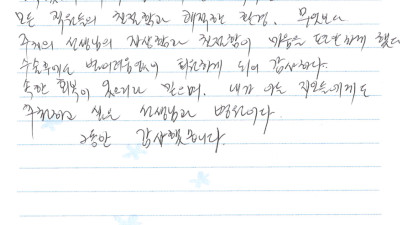 모든 직원들의 친절함과 쾌적한 환경. 무엇보다
주치의 선생님의 자상함과 친절함이 마음을 편안하게 했다
수술후에도 퇴원하게 되어 감사하다.
속한 회복이 있으리라 믿으며. 내가 아는 지인들에게도
추천하고 싶은 선생님과 병원이다.
그동안 감사했습니다.